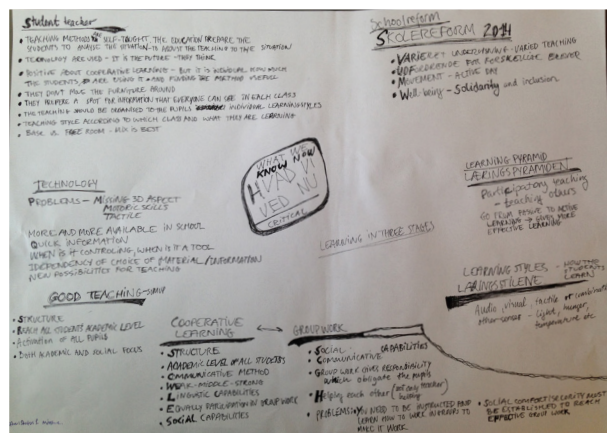 Student teacher
• TEACHING METHODS SELF-TAUGHT. THE EDUCATION PREPARE THE
STUDENTS TO ANALYSE THE SITUATION - TO ADJUST THE TEACHING TO THE SITUATION
• TECHNOLOGY ARE USED - IT IS THE FUTURE - THEY THINK
• POSITIVE ABOUT COOPERATIVE LEARNING - BUT IT IS INDIVIDUAL HOW MUCH
THE STUDENTS ARE USING IT AND FINDING THE METHOD USEFULL
• THEY DON'T MOVE THE FURNITURE AROUND
• THEY PREFERE A SPOT FOR INFORMATION THAT EVERYONE CAN SEE IN EACH CLASS
• THE TEACHING SHOULD BE ORGANISED TO THE PUPILS INDIVIDUAL LEARNINGSTYLES
• TEACHING STYLE ACCORDING TO WHICH CLASS AND WHAT THEY ARE LEARNING
• BASE VS. FREE ROOM - MIX IS BEST
Schoolreform
SKOLEREFORM 2014
• VARIERET UNDERVISNING - VARIED TEACHING
• UDFORDRENDE FOR FORSKELLIGE ELEVER
• MOVEMENT - ACTIVE DAY
• Well-being - Solidarity and inclusion
WHAT WE
KNOW NOW
HVAD VI
VED NU
CRITICAL
TECHNOLOGY
PROBLEMS - MISSING 3D ASPECT
MOTORIC SKILLS
TACTILE
MORE AND MORE AVAILABLE IN SCHOOL
QUICK INFORMATION
WHEN IS IT CONTROLING, WHEN IS IT A TOOL
INDEPENDENCY OF CHOICE OF MATERIAL/INFORMATION
NEW POSSIBILITIES FOR TEACHING
LEARNING IN THREE STAGES
LEARNING PYRAMID
LÆRINGSPYRAMIDEN
Participatory teaching
- teaching others
GO FROM PASSIVE TO ACTIVE
LEARNING → GIVES MORE
EFFECTIVE LEARNING
LEARNING STYLES - HOW THE STUDENTS LEARN
LÆRINGSSTILENE
Audio, visual, tactile or combination
other sense - light, hunger,
temperature etc.
GOOD TEACHING
• STRUCTURE
• REACH ALL STUDENTS ACADEMIC LEVEL
• Activation of ALL PUPILS
• BOTH ACADEMIC AND SOCIAL FOCUS
COOPERATIVE
LEARNING
• STRUCTURE
• ACADEMIC LEVEL OF ALL STUDENTS
• COMMUNICATIVE METHOD
• WEAK - MIDDLE - STRONG
• LINGUATIC CAPABILITIES
• EQUALLY PARTICIPATION IN GROUP WORK
• SOCIAL CAPABILITIES
GROUP WORK
• SOCIAL CAPABILITIES
• Communicative
• GROUP WORK GIVE RESPONSIBILITY
which obligate the pupils
• Helping each other (not only teacher helping)
• PROBLEMS: YOU NEED TO BE INSTRUCTED AND
LEARN HOW TO WORK IN GROUPS TO
MAKE IT WORK
• SOCIAL COMFORT/SECURITY MUST
BE ESTABLISHED TO REACH
EFFECTIVE GROUP WORK